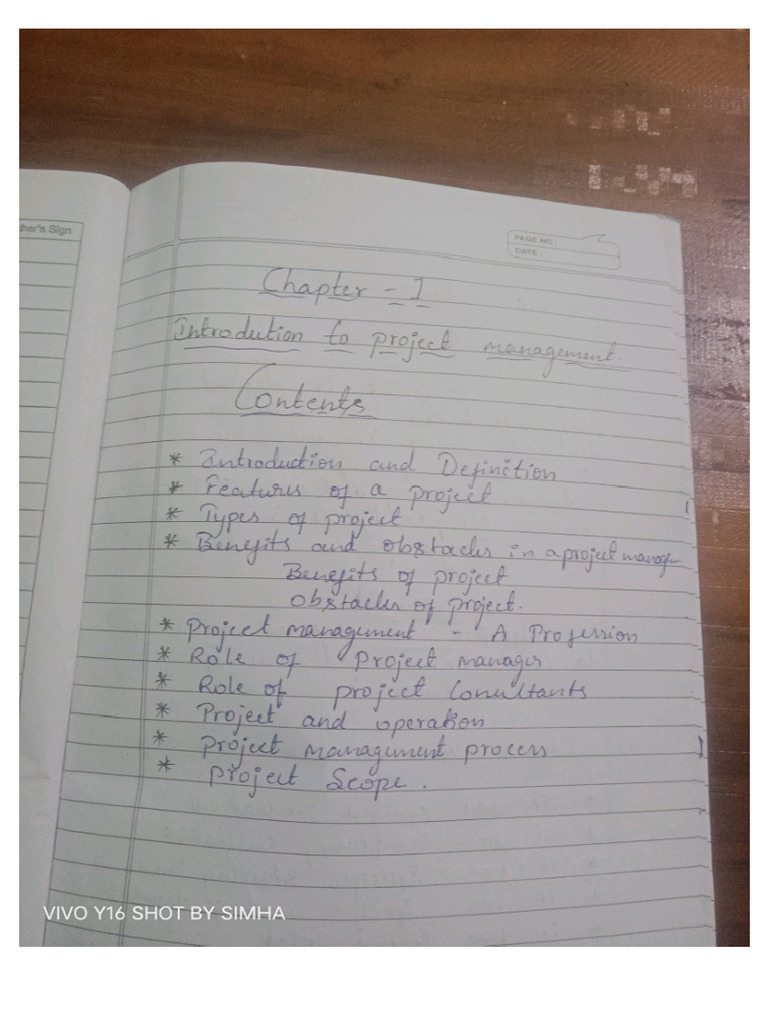 cher's Sign
PAGE NO :
DATE :
Chapter - I
Introdution to project management
Contents
* Introduction and Definition
* Features of a project
* Types of project
* Benefits and obstacles in a project
Benefits of project
Obstacles of project.
* Project management - A Profession
* Role of Project manager
* Role of project Conultants
* Project and operation
* Project management process
* Project Scope.
VIVO Y16 SHOT BY SIMHA